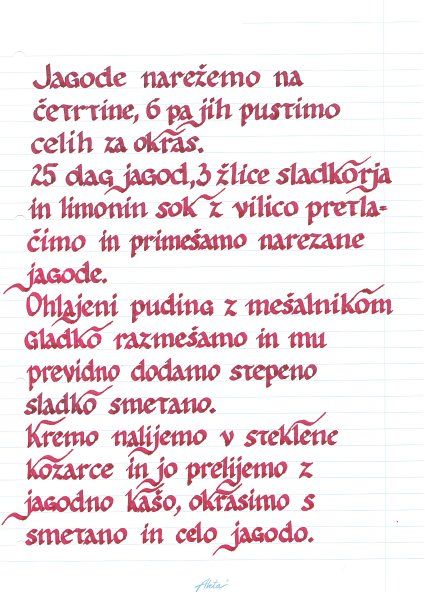 Jagode narežemo na
četrtine, 6 pa jih pustimo
celih za okras.
25 dag jagod, 3 žlice sladkorja
in limonin sok z vilico pretla-
čimo in primešamo narezane
jagode.
Ohlajeni puding z mešalnikom
gladko razmešamo in mu
previdno dodamo stepeno
sladko smetano.
Kremo nalijemo v steklene
kozarce in jo prelijemo z
jagodno kašo, okrasimo s
smetano in celo jagodo.